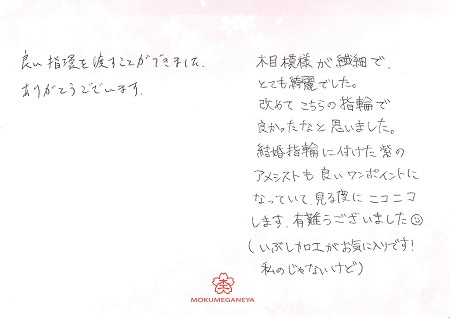 良い指環を渡すことができました。
ありがとうございます。
木目模様が繊細で、
とても綺麗でした。
改めてこちらの指輪で
良かったなと思いました。
結婚指輪に付けた紫の
アメシストも良いワンポイントに
なっていて、見る度にニコニコ
します。有難うございました☺
(いぶし加工がお気に入りです!
私のじゃないけど)
MOKUMEGANEYA